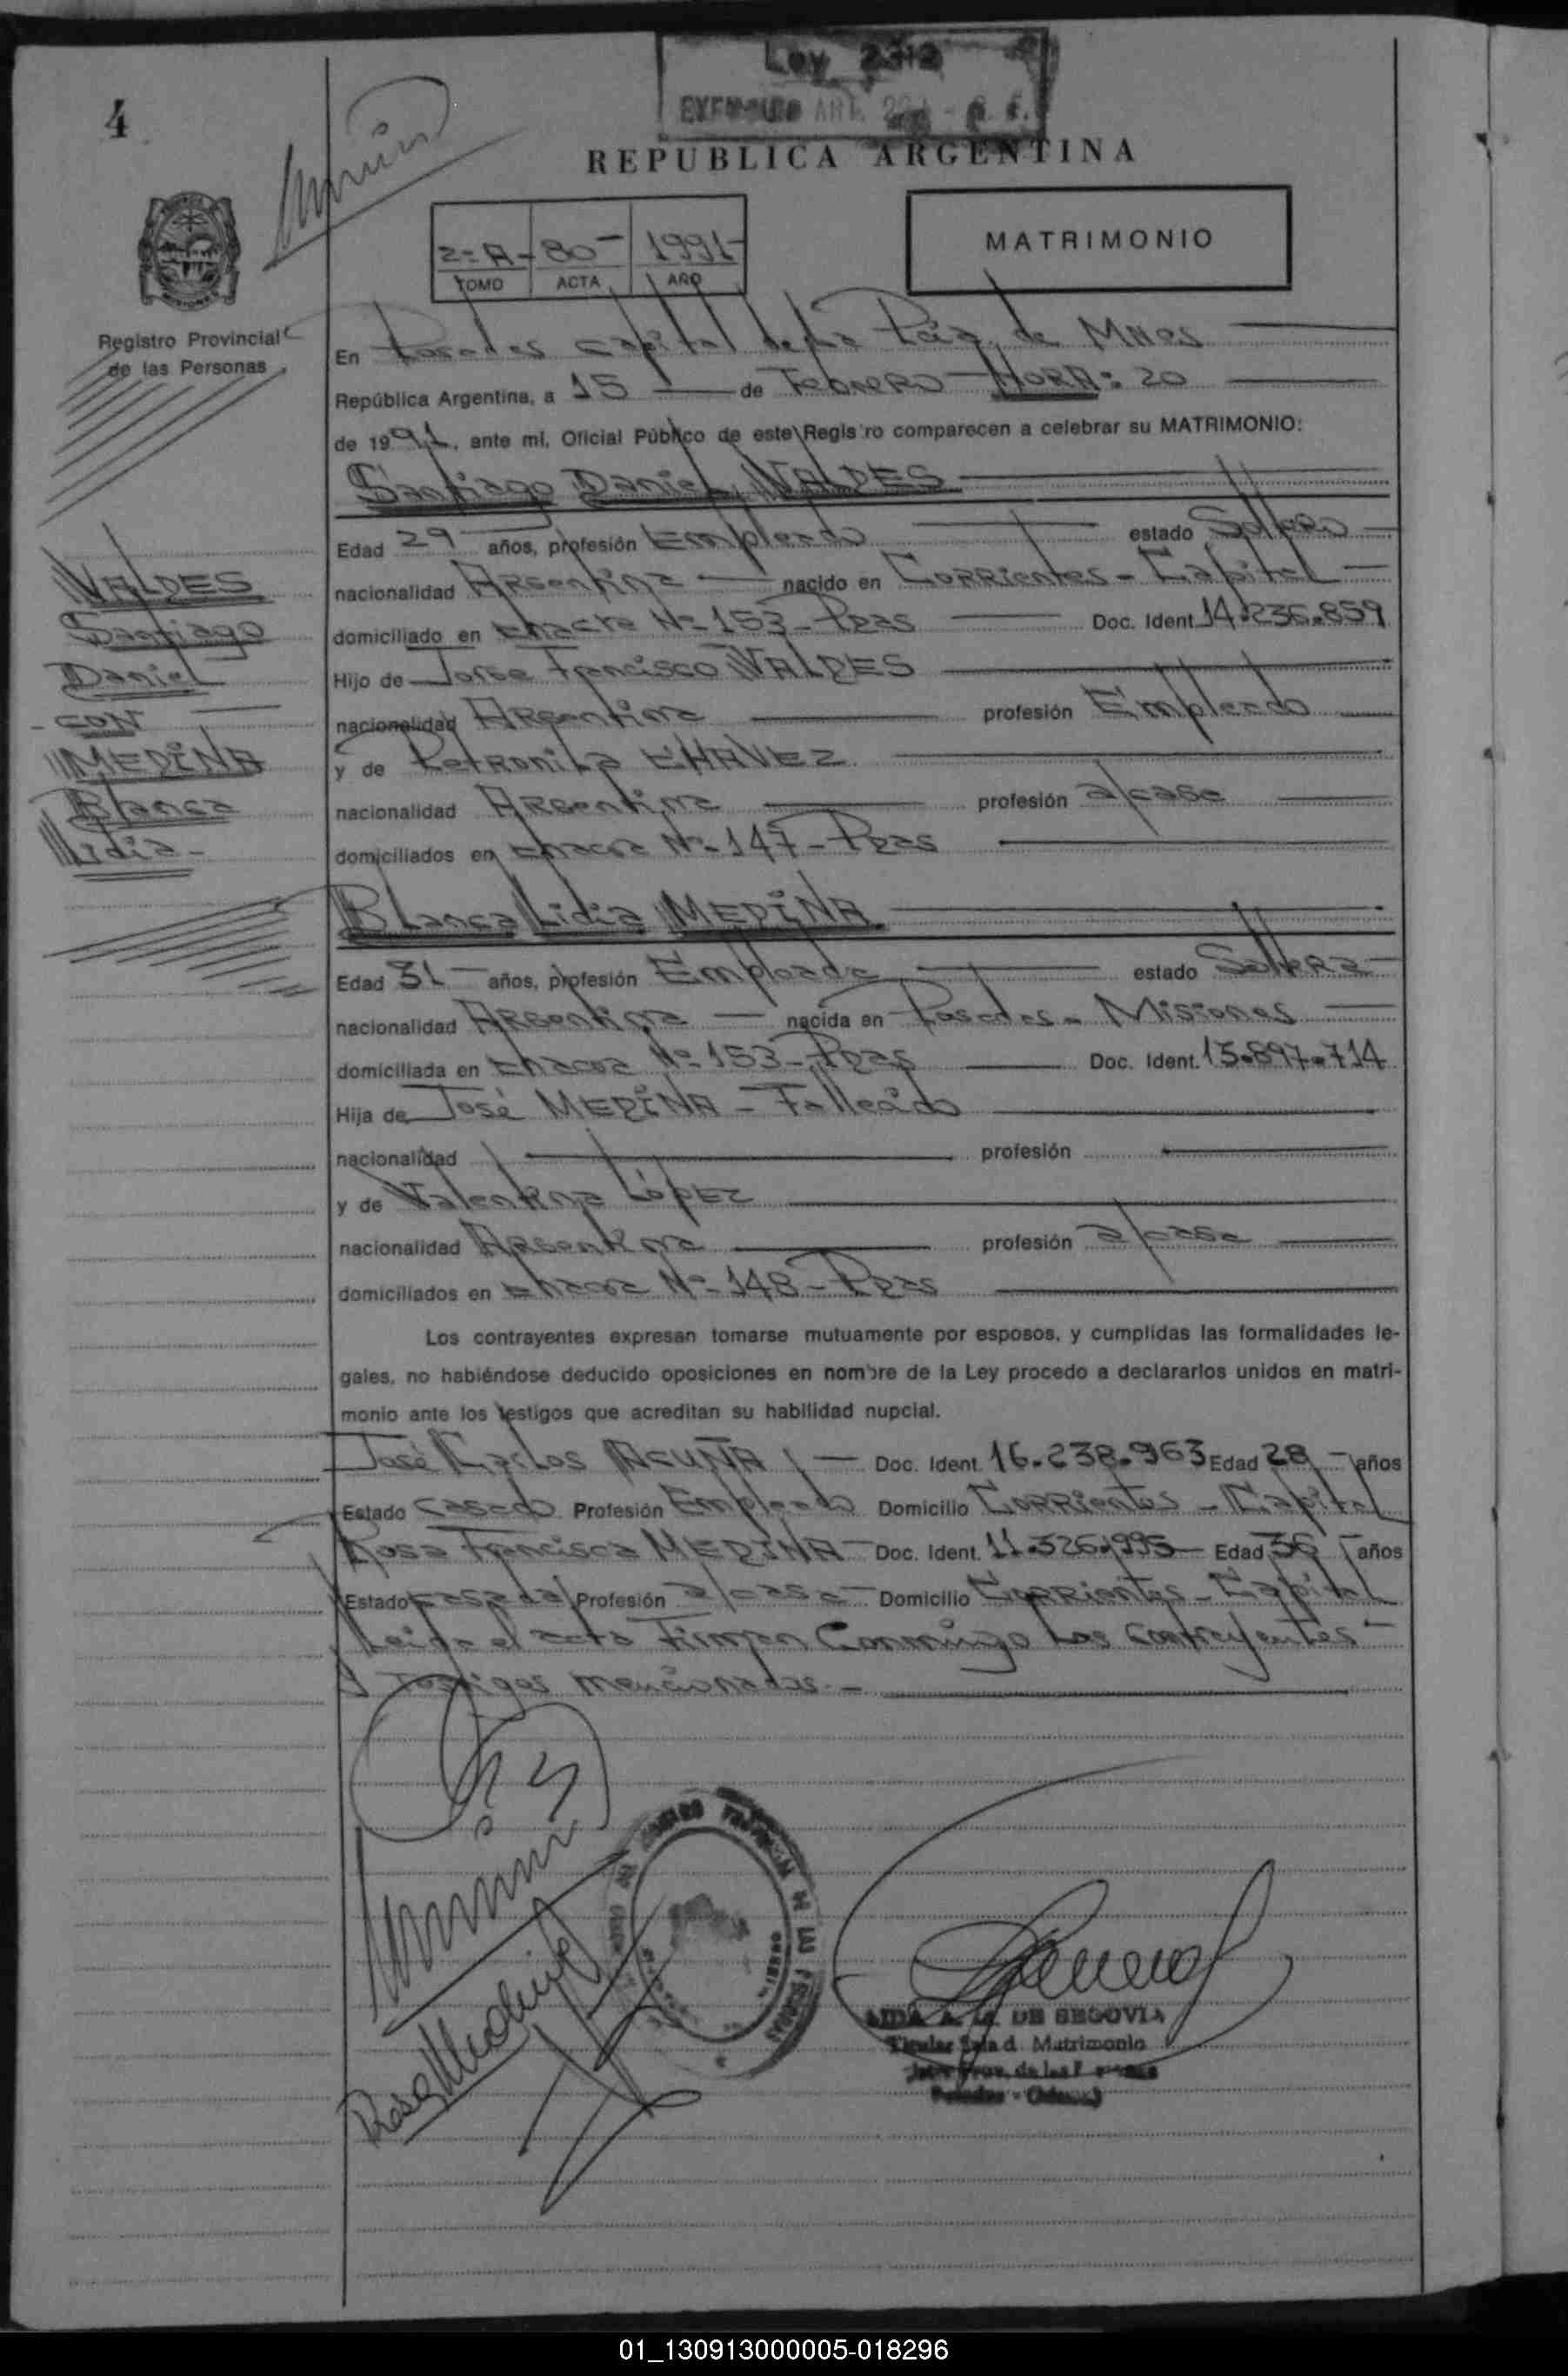 4
Ley 2312
REPUBLICA ARGENTINA
2= A- 80- 1991-
TOMO ACTA AÑO
MATRIMONIO
Registro Provincial
de las Personas
En Posadas capital de La Pcia. de Mnes
República Argentina, a 15 de Febrero HORA: 20
de 1991, ante mí, Oficial Público de este Registro comparecen a celebrar su MATRIMONIO:
Santiago Daniel VALDES
Edad 29 años, profesión Empleado estado Soltero
nacionalidad Argentina nacido en Corrientes - Capital
domiciliado en Chacra Nº 153 - Pdas Doc. Ident. 14.236.859
Hijo de Jorge Francisco VALDES
nacionalidad Argentina profesión Empleado
y de Petronila CHAVEZ
nacionalidad Argentina profesión a/casa
domiciliados en Chacra Nº 147 - Pdas
VALDES
Santiago
Daniel
- CON
MEDINA
Blanca
Lidia -
Blanca Lidia MEDINA
Edad 31 años, profesión Empleada estado Soltera
nacionalidad Argentina nacida en Posadas - Misiones
domiciliada en Chacra Nº 153 - Pdas Doc. Ident. 13.897.714
Hija de José MEDINA - Fallecido
nacionalidad profesión
y de Valentina López
nacionalidad Argentina profesión a/casa
domiciliados en Chacra Nº 148 - Pdas
Los contrayentes expresan tomarse mutuamente por esposos, y cumplidas las formalidades le-
gales, no habiéndose deducido oposiciones en nombre de la Ley procedo a declararlos unidos en matri-
monio ante los testigos que acreditan su habilidad nupcial.
José Carlos ACUÑA Doc. Ident. 16.238.963 Edad 28 años
Estado Casado Profesión Empleado Domicilio Corrientes - Capital
Rosa Francisca MEDINA Doc. Ident. 11.326.995 Edad 36 años
Estado Casada Profesión a/casa Domicilio Corrientes - Capital
Leida el acta Firman Conmigo Los Contrayentes
y Testigos mencionados. -
Rosa Medina
DE SEGOVIA
Titular Sala d. Matrimonio
01_130913000005-018296